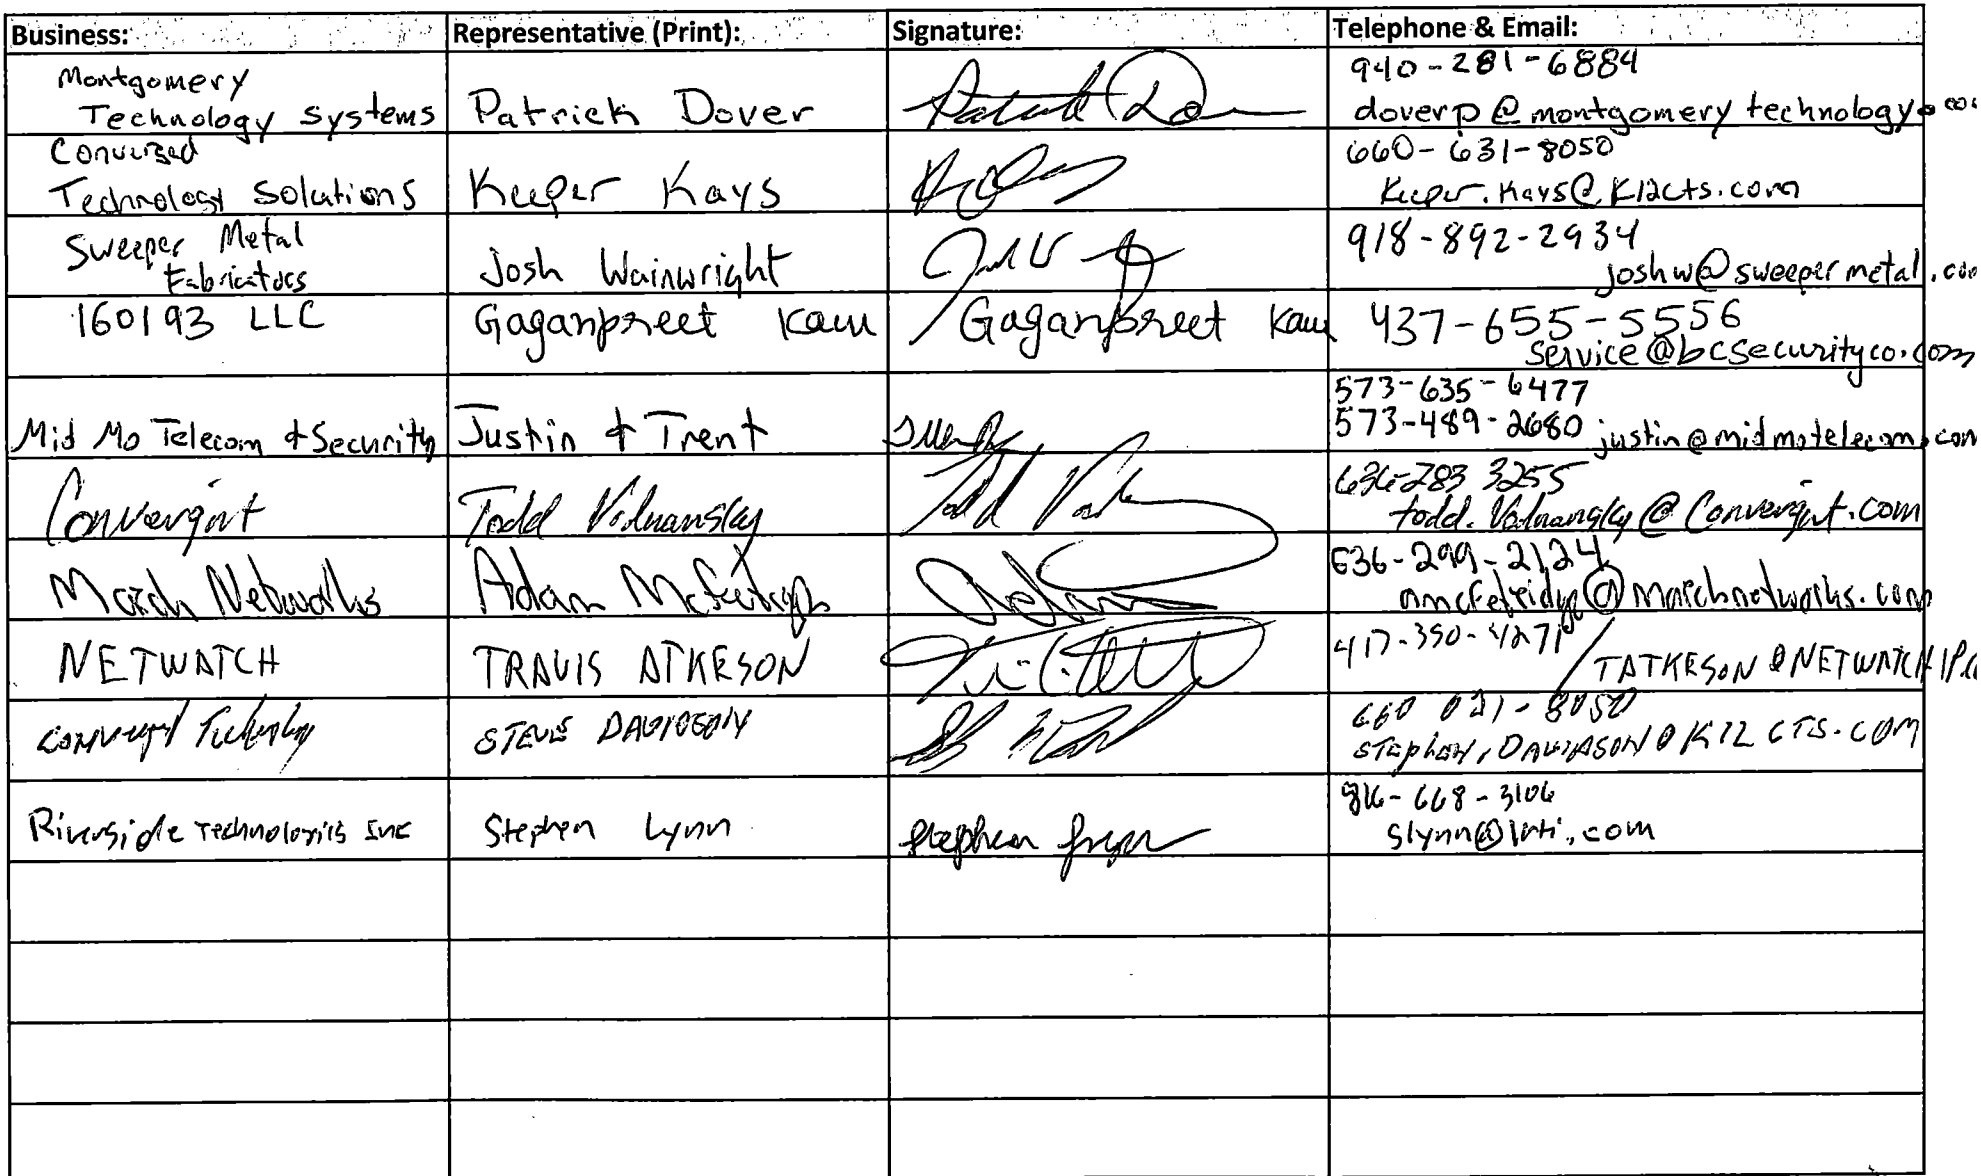 Business: Representative (Print): Signature: Telephone & Email:
Montgomery
Technology Systems Patrick Dover Patrick Do 940-281-6884
doverp@montgomerytechnology.com
Converged
Technology Solutions Keeper Kays 660-631-8050
Keeper.Kays@K12cts.com
Sweeper Metal
Fabricators Josh Wainwright 918-892-2934
joshw@sweepermetal.com
160193 LLC Gaganpreet Kaur Gaganpreet Kaur 437-655-5556
service@bcsecurityco.com
573-635-6477
Mid Mo Telecom & Security Justin & Trent 573-489-2680 justin@midmotelecom.com
Convergint Todd Vidnansky Todd 636-283 3255
todd.Vidnansky@Convergint.com
March Networks Adam McFetridge Adam 636-299-2124
amcfetridge@marchnetworks.com
NETWATCH TRAVIS ATKESON 417-350-4271
TATKESON@NETWATCHIP.
STEVE DAVIDSON 660 8050
STEPHEN.DAVIDSON@K12CTS.COM
Riverside Technologies Inc Stephen Lynn Stephen Lynn 816-668-3106
slynn@